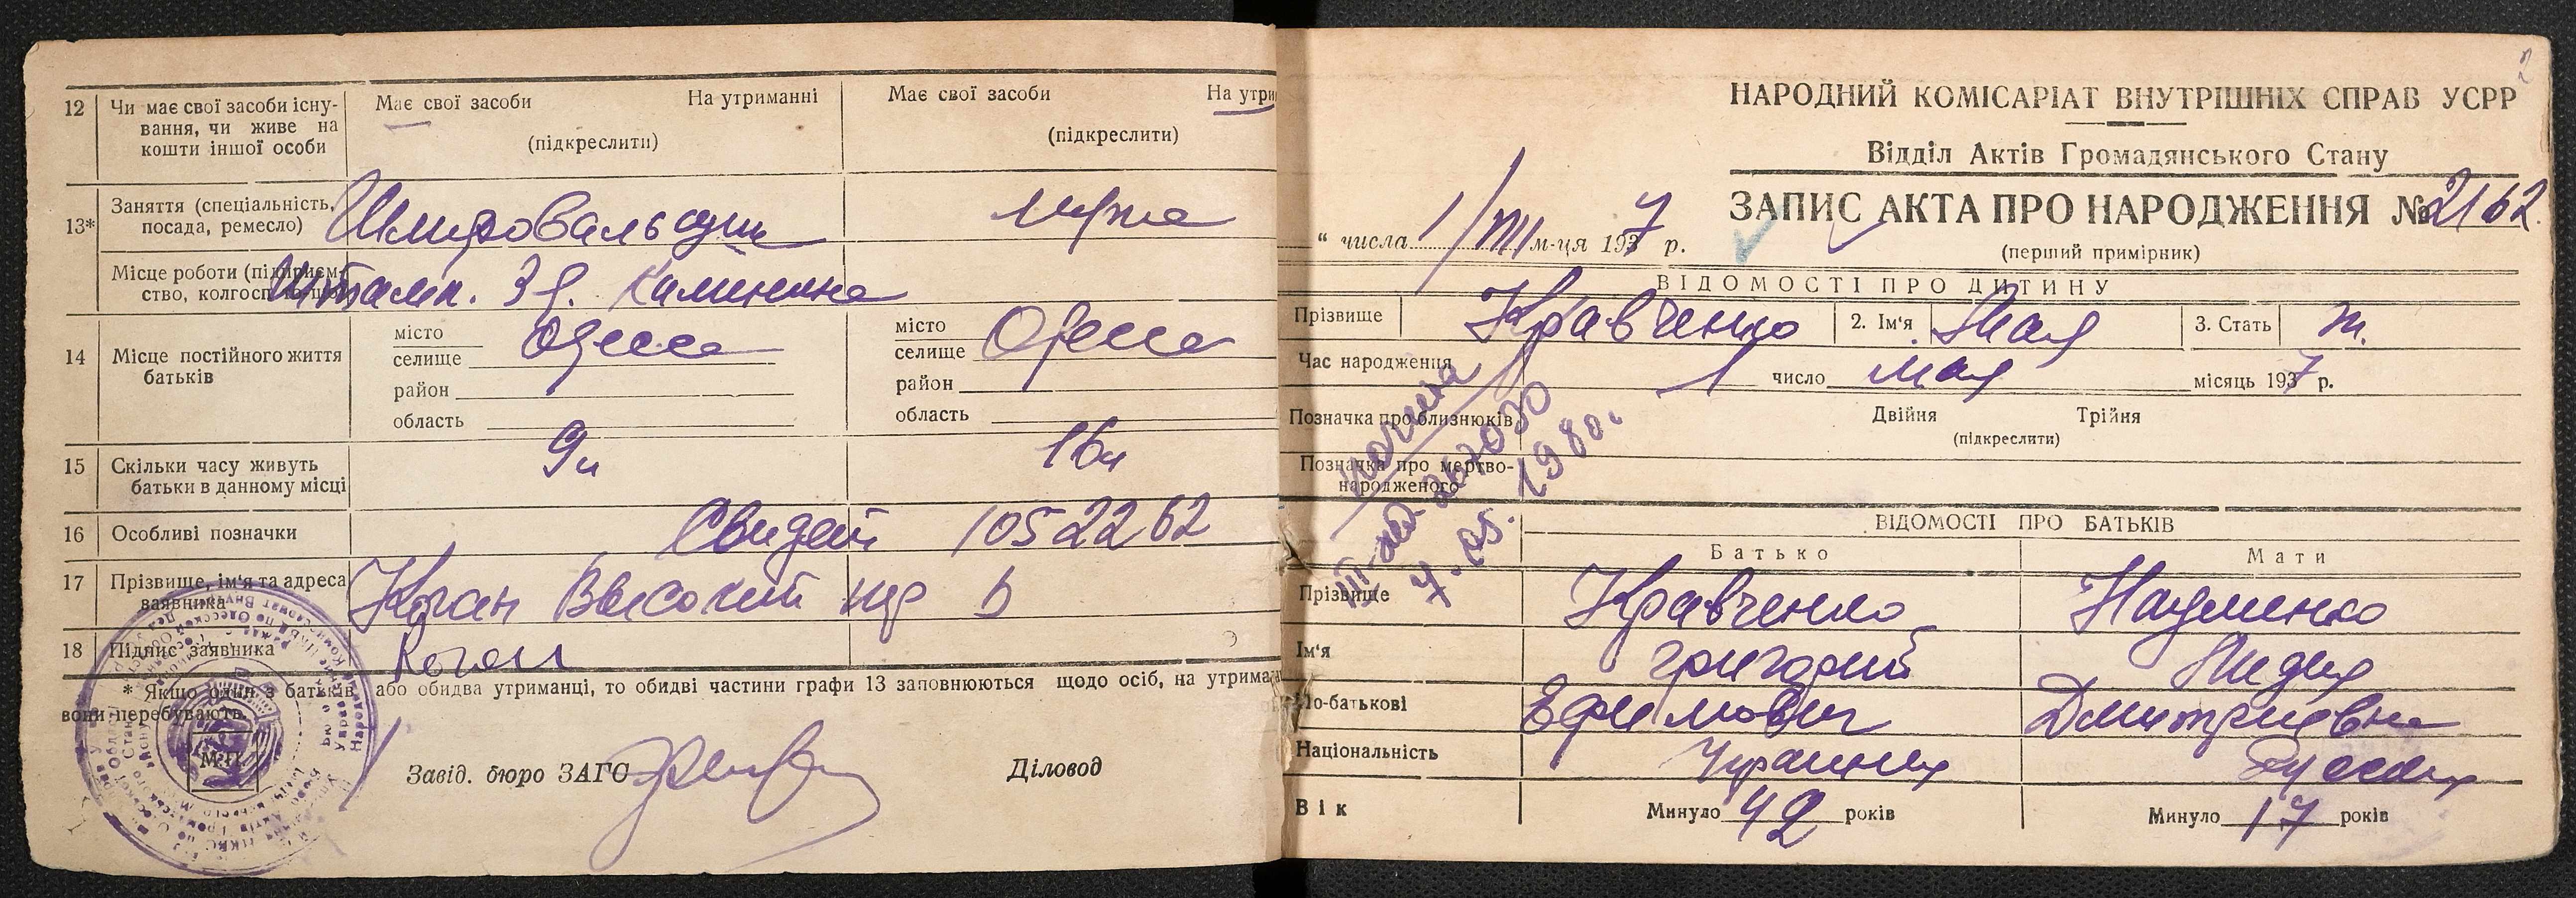 12 Чи має свої засоби існу-
вання, чи живе на
кошти іншої особи
Має свої засоби На утриманні
(підкреслити)
Має свої засоби На утри
(підкреслити)
13* Заняття (спеціальність,
посада, ремесло)
Шлифовальщик
мужа
Місце роботи (підприєм-
ство, колгосп
Штамп. Зд. Калинина
14 Місце постійного життя
батьків
місто
селище Одесса
район
область
місто
селище Одесса
район
область
15 Скільки часу живуть
батьки в данному місці
9л 16л
16 Особливі позначки Свидет 1052262
17 Прізвище, ім'я та адреса
заявника
Коган Высокий пер 5
18 Підпис заявника Коган
* Якщо один з батьків або обидва утриманці, то обидві частини графи 13 заповнюються щодо осіб, на утрима
вони перебувають.
М.П.
Завід. бюро ЗАГС Діловод
2
НАРОДНИЙ КОМІСАРІАТ ВНУТРІШНІХ СПРАВ УСРР
Відділ Актів Громадянського Стану
ЗАПИС АКТА ПРО НАРОДЖЕННЯ № 2162
(перший примірник)
" числа 1/VIII м-ця 1937 р.
ВІДОМОСТІ ПРО ДИТИНУ
Прізвище Кравченко 2. Ім'я Мая 3. Стать ж.
Час народження 1 число мая місяць 1937 р.
Позначка про близнюків Двійня Трійня
(підкреслити)
Позначка про мертво-
народженого
7.05.1980г
ВІДОМОСТІ ПРО БАТЬКІВ
Батько Мати
Прізвище Кравченко Науменко
Ім'я Григорий Лидия
По-батькові Ефимович Дмитриевна
Національність Украинец Русская
Вік Минуло 42 років Минуло 17 років